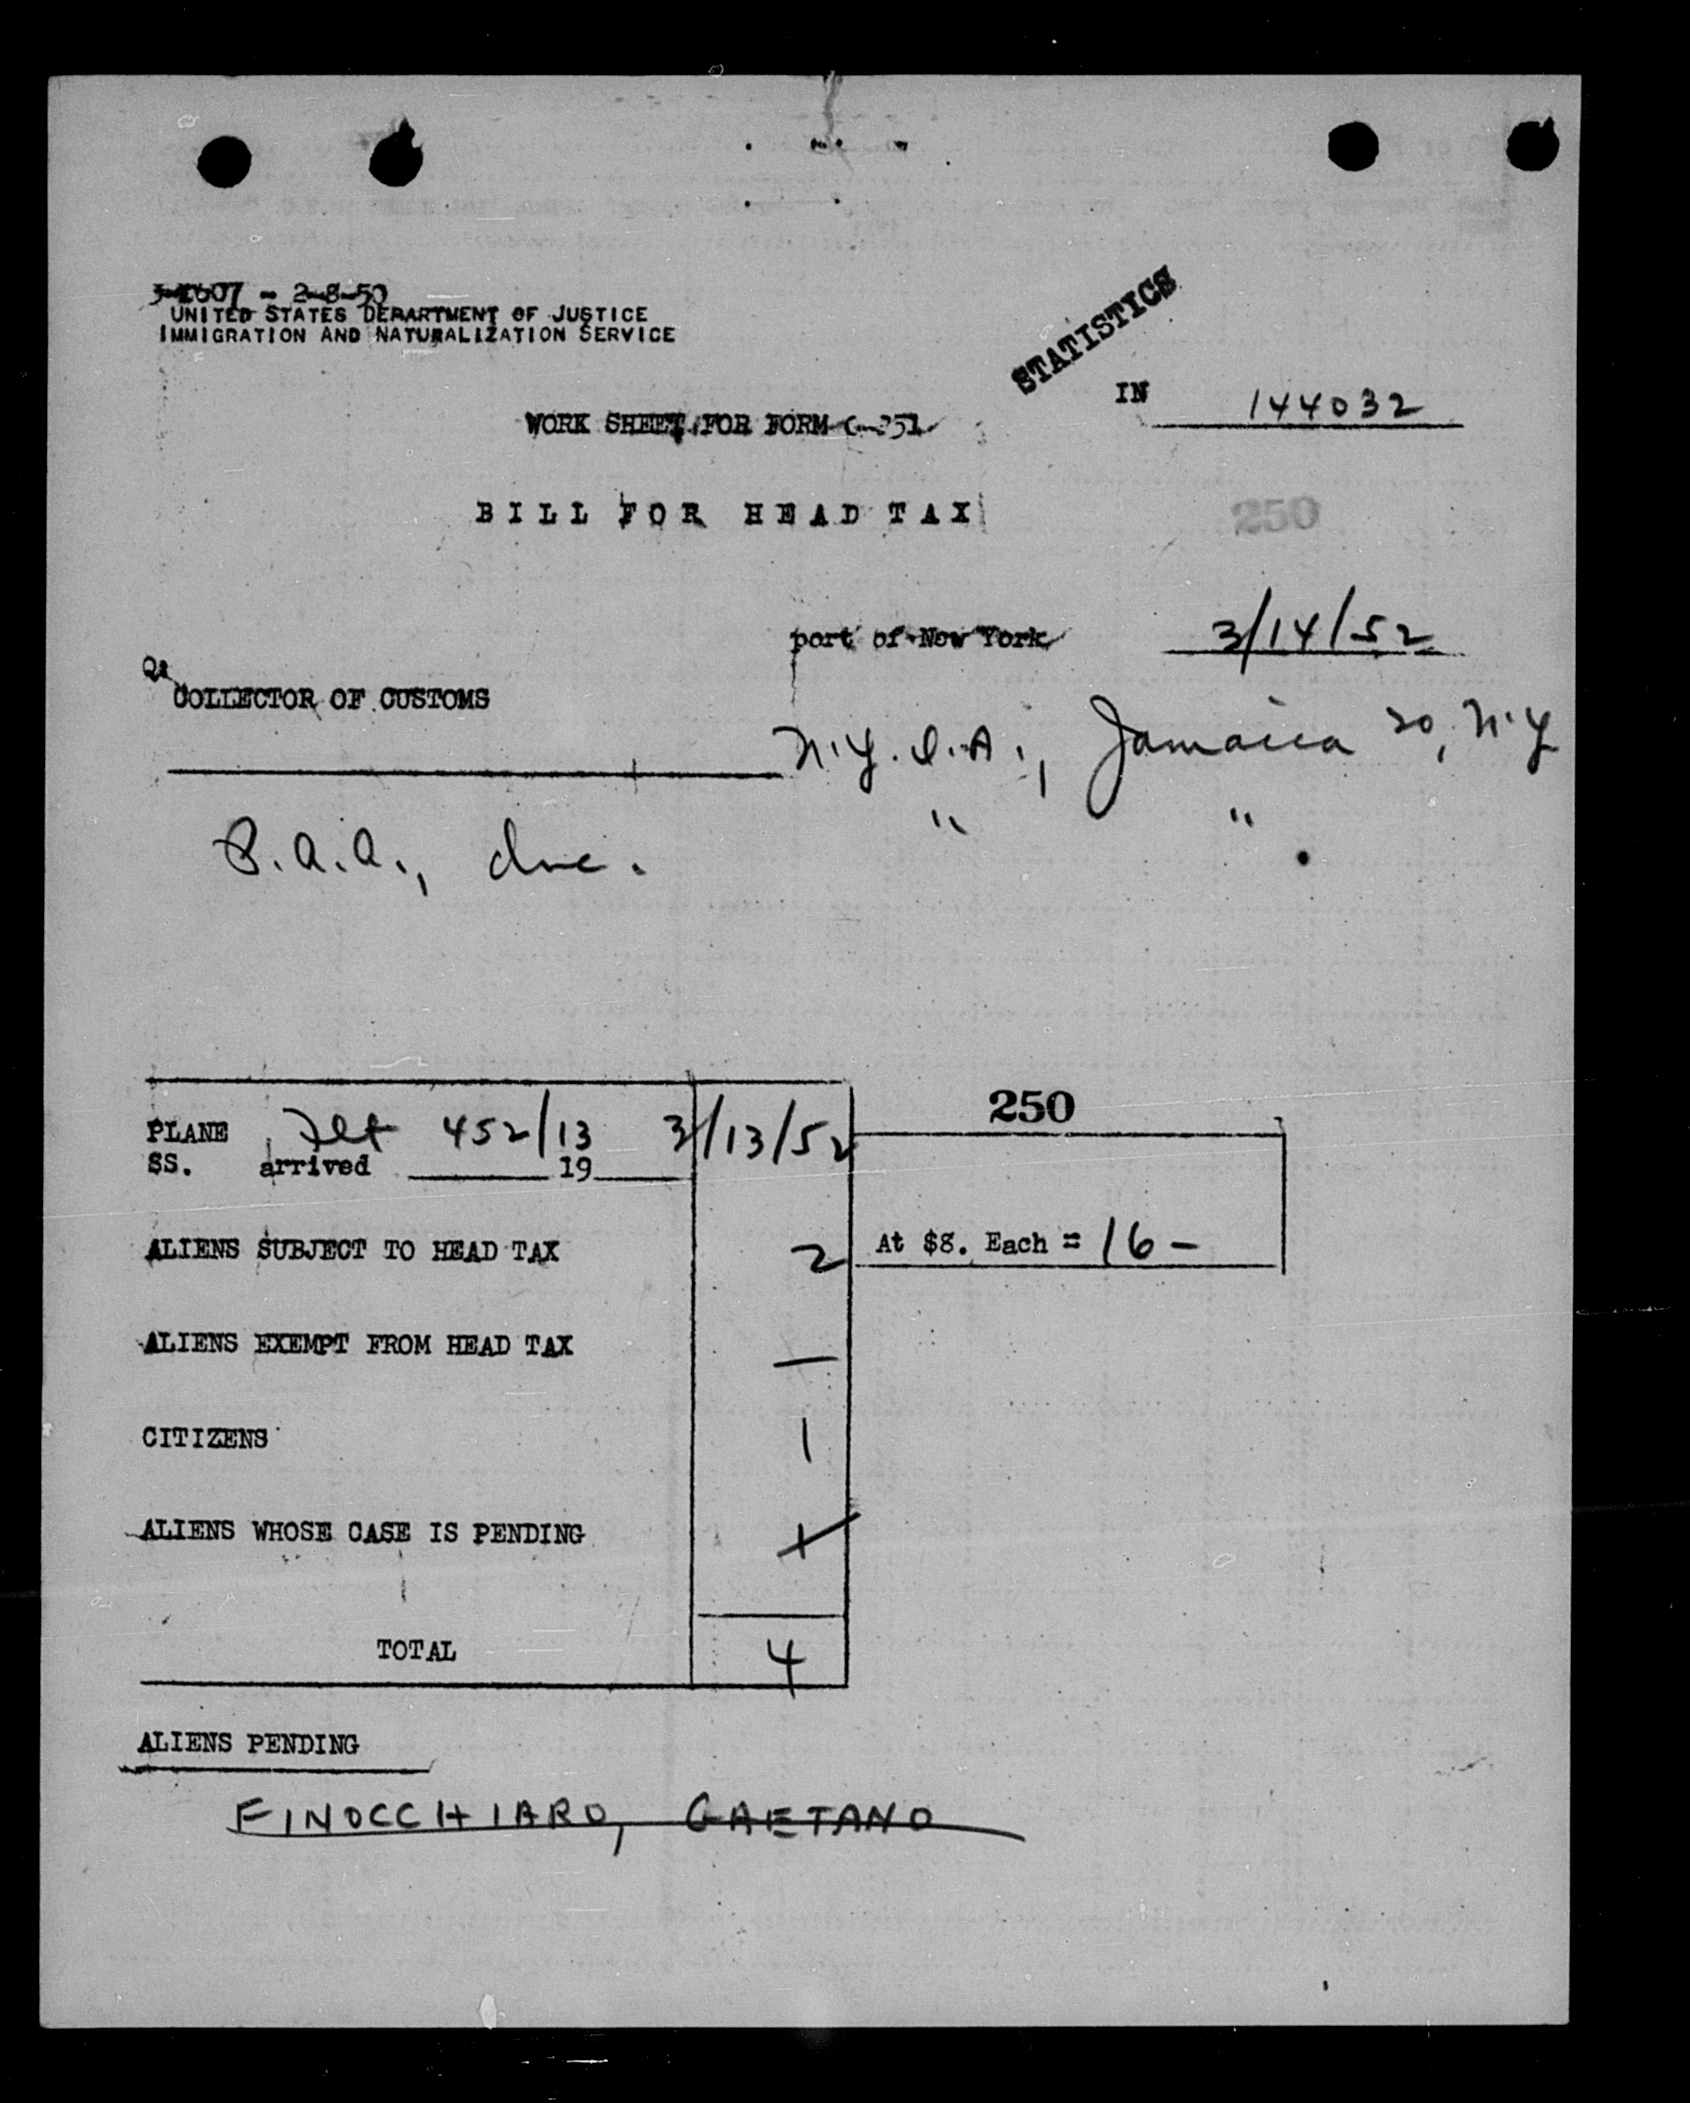 3-1607 - 2-8-50
UNITED STATES DEPARTMENT OF JUSTICE
IMMIGRATION AND NATURALIZATION SERVICE
STATISTICS
IN 144032
WORK SHEET FOR FORM C-251
BILL FOR HEAD TAX
250
port of New York 3/14/52
COLLECTOR OF CUSTOMS
N.Y.I.A., Jamaica 20, N.Y
P.A.A., Inc. " "
250
PLANE Flt 452/13 3/13/52
SS. arrived 19
ALIENS SUBJECT TO HEAD TAX 2 At $8. Each = 16-
ALIENS EXEMPT FROM HEAD TAX —
CITIZENS 1
ALIENS WHOSE CASE IS PENDING 1
TOTAL 4
ALIENS PENDING
FINOCCHIARO, GAETANO